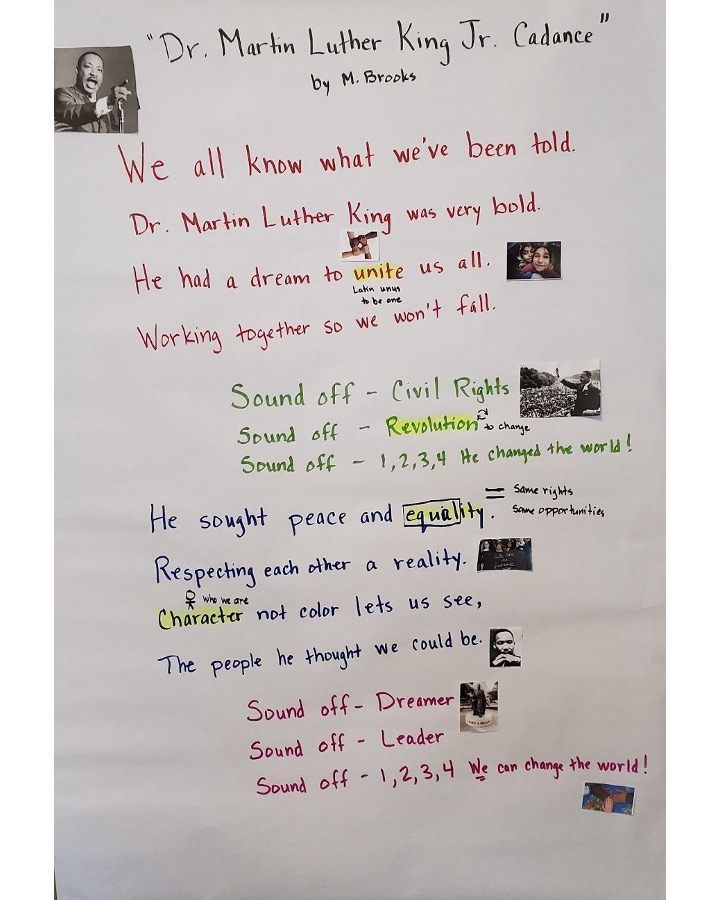 "Dr. Martin Luther King Jr. Cadance"
by M. Brooks
We all know what we've been told.
Dr. Martin Luther King was very bold.
He had a dream to unite us all.
Latin unus
to be one
Working together so we won't fall.
Sound off - Civil Rights
Sound off - Revolution to change
Sound off - 1,2,3,4 He changed the world!
He sought peace and equality. = Same rights
Same opportunities
Respecting each other a reality.
who we are
Character not color lets us see,
The people he thought we could be.
Sound off - Dreamer
Sound off - Leader
Sound off - 1,2,3,4 We can change the world!